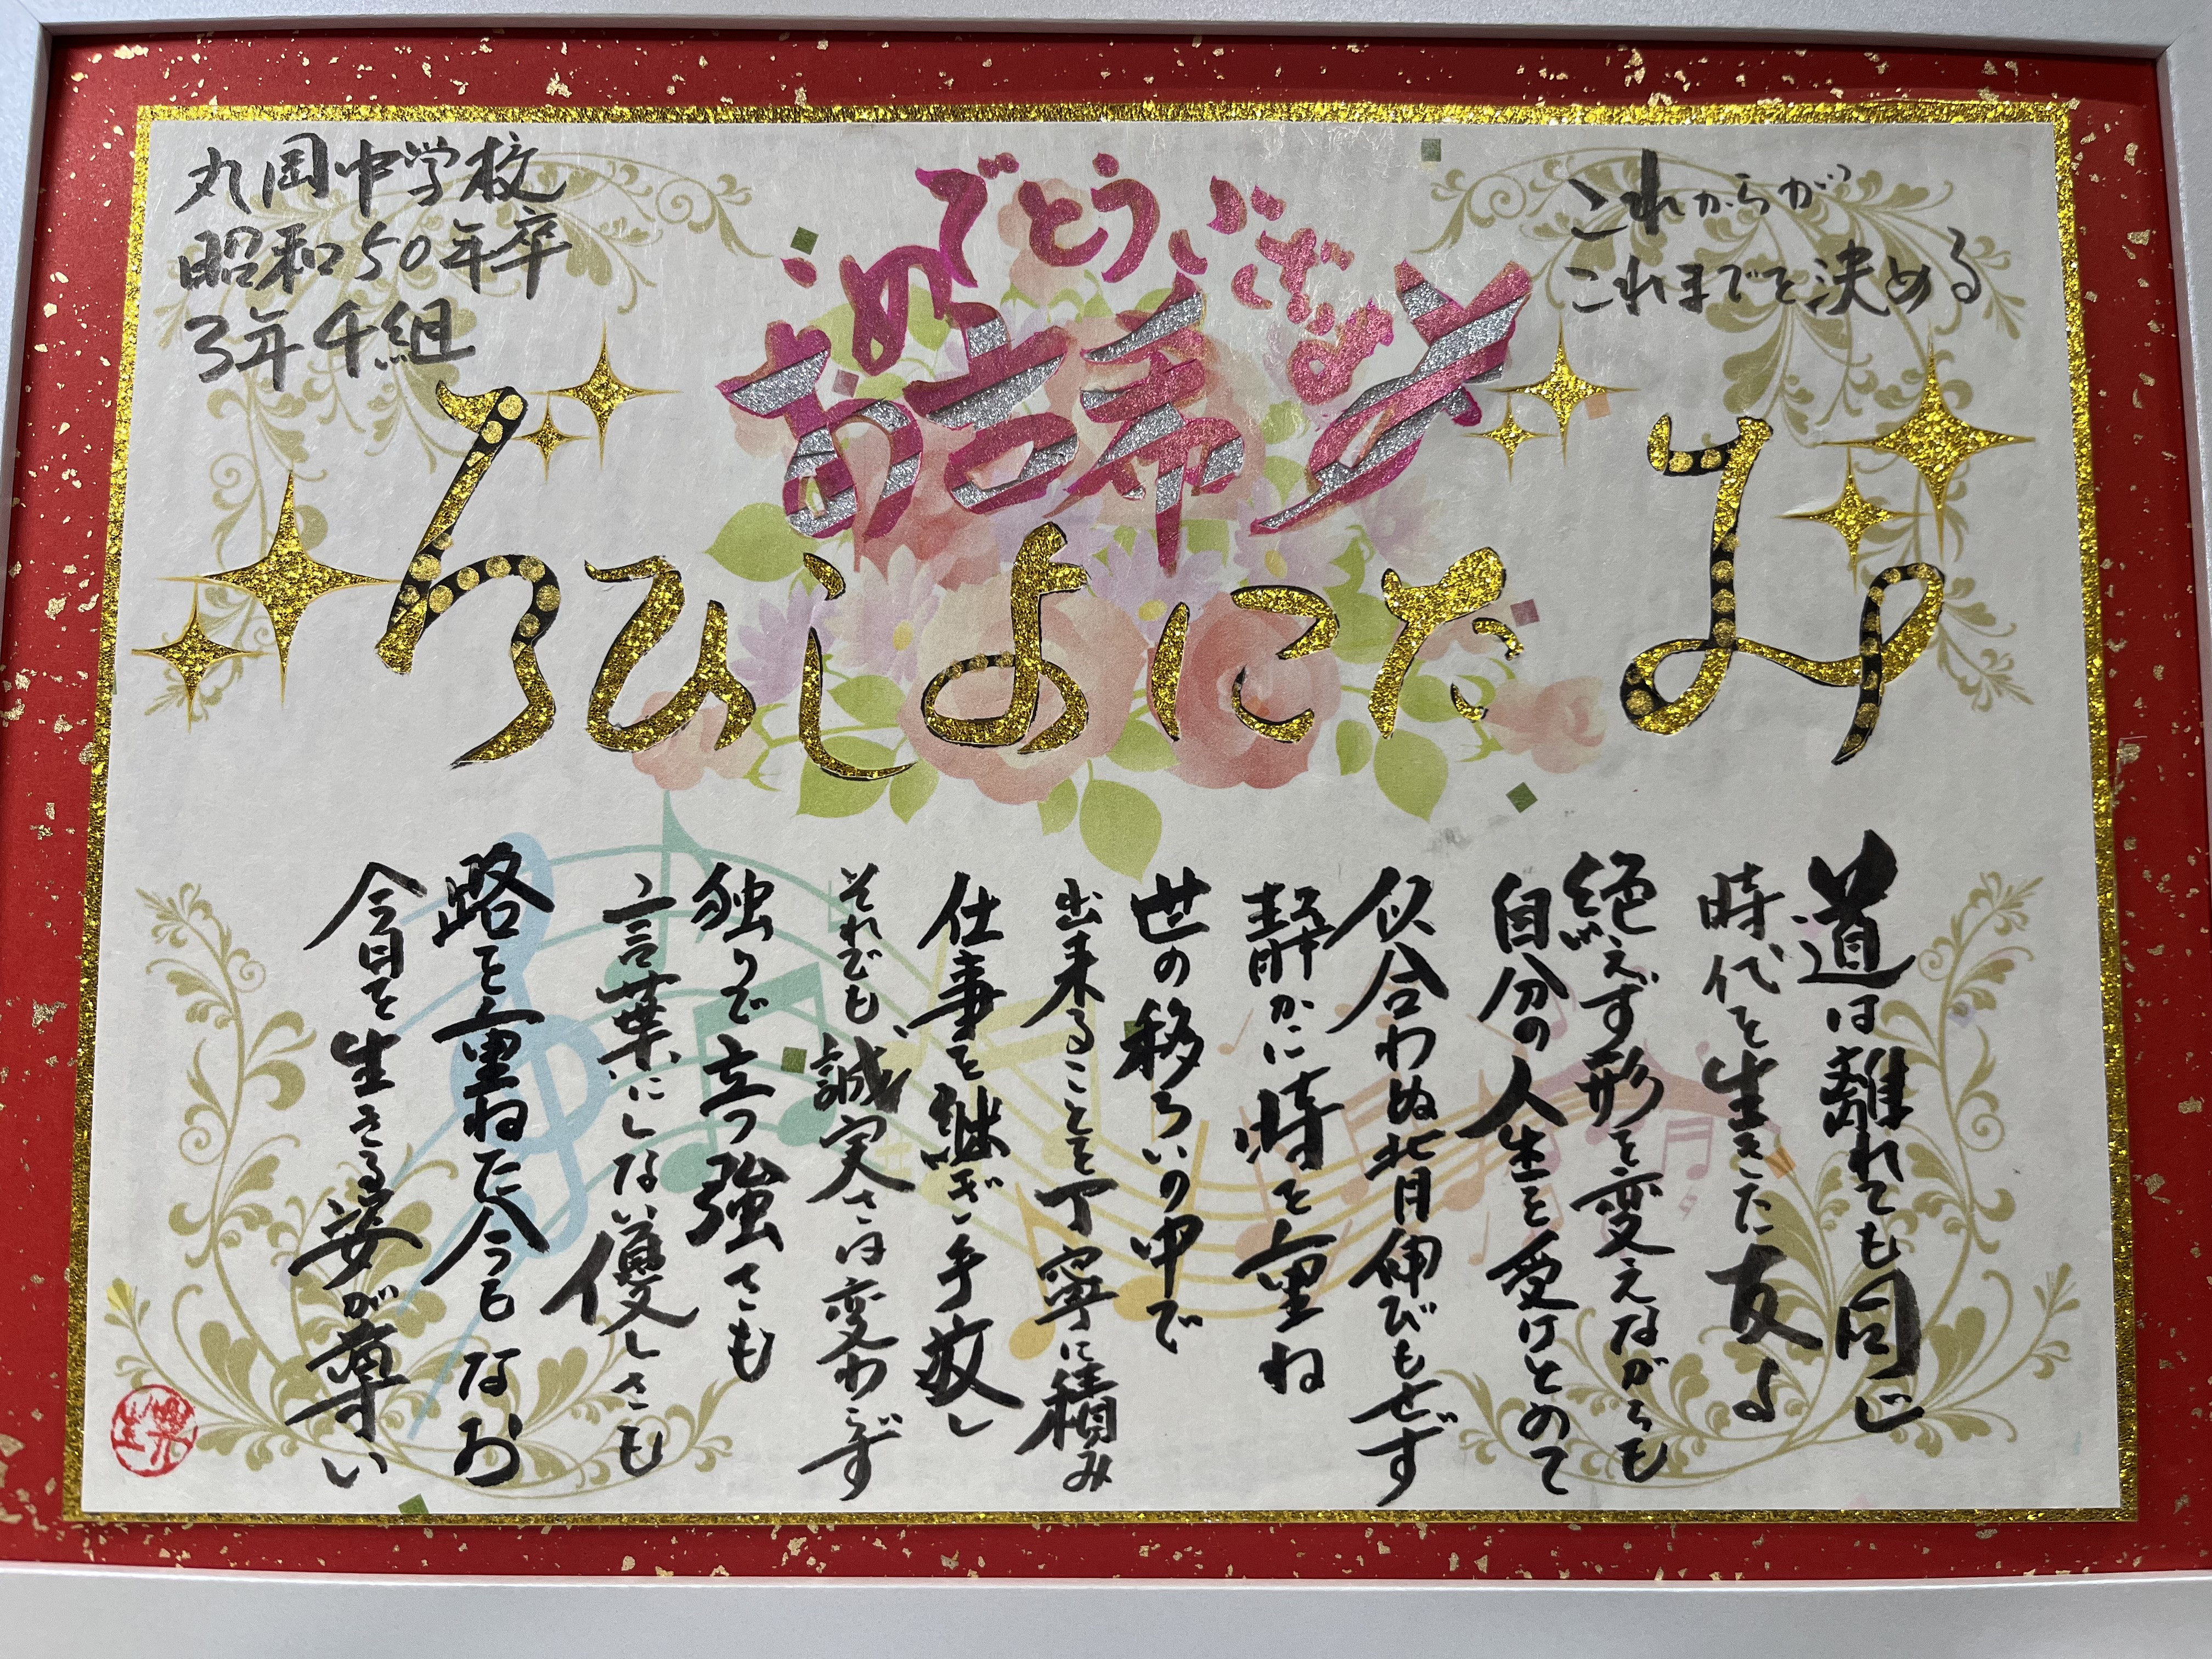 丸岡中学校
昭和50年卒
3年4組
これからが
これまでを決める
おめでとうございます
古希
みたによしひろ
道は離れても同じ
時代を生きた友よ
絶えず形を変えながらも
自分の人生を受けとめて
似合わぬ背伸びもせず
静かに時を重ね
世の移ろいの中で
出来ることを丁寧に積み
仕事を継ぎ手放し
それでも誠実さは変わらず
独りで立つ強さも
言葉にしない優しさも
路を重ねた今もなお
今日を生きる姿が尊い